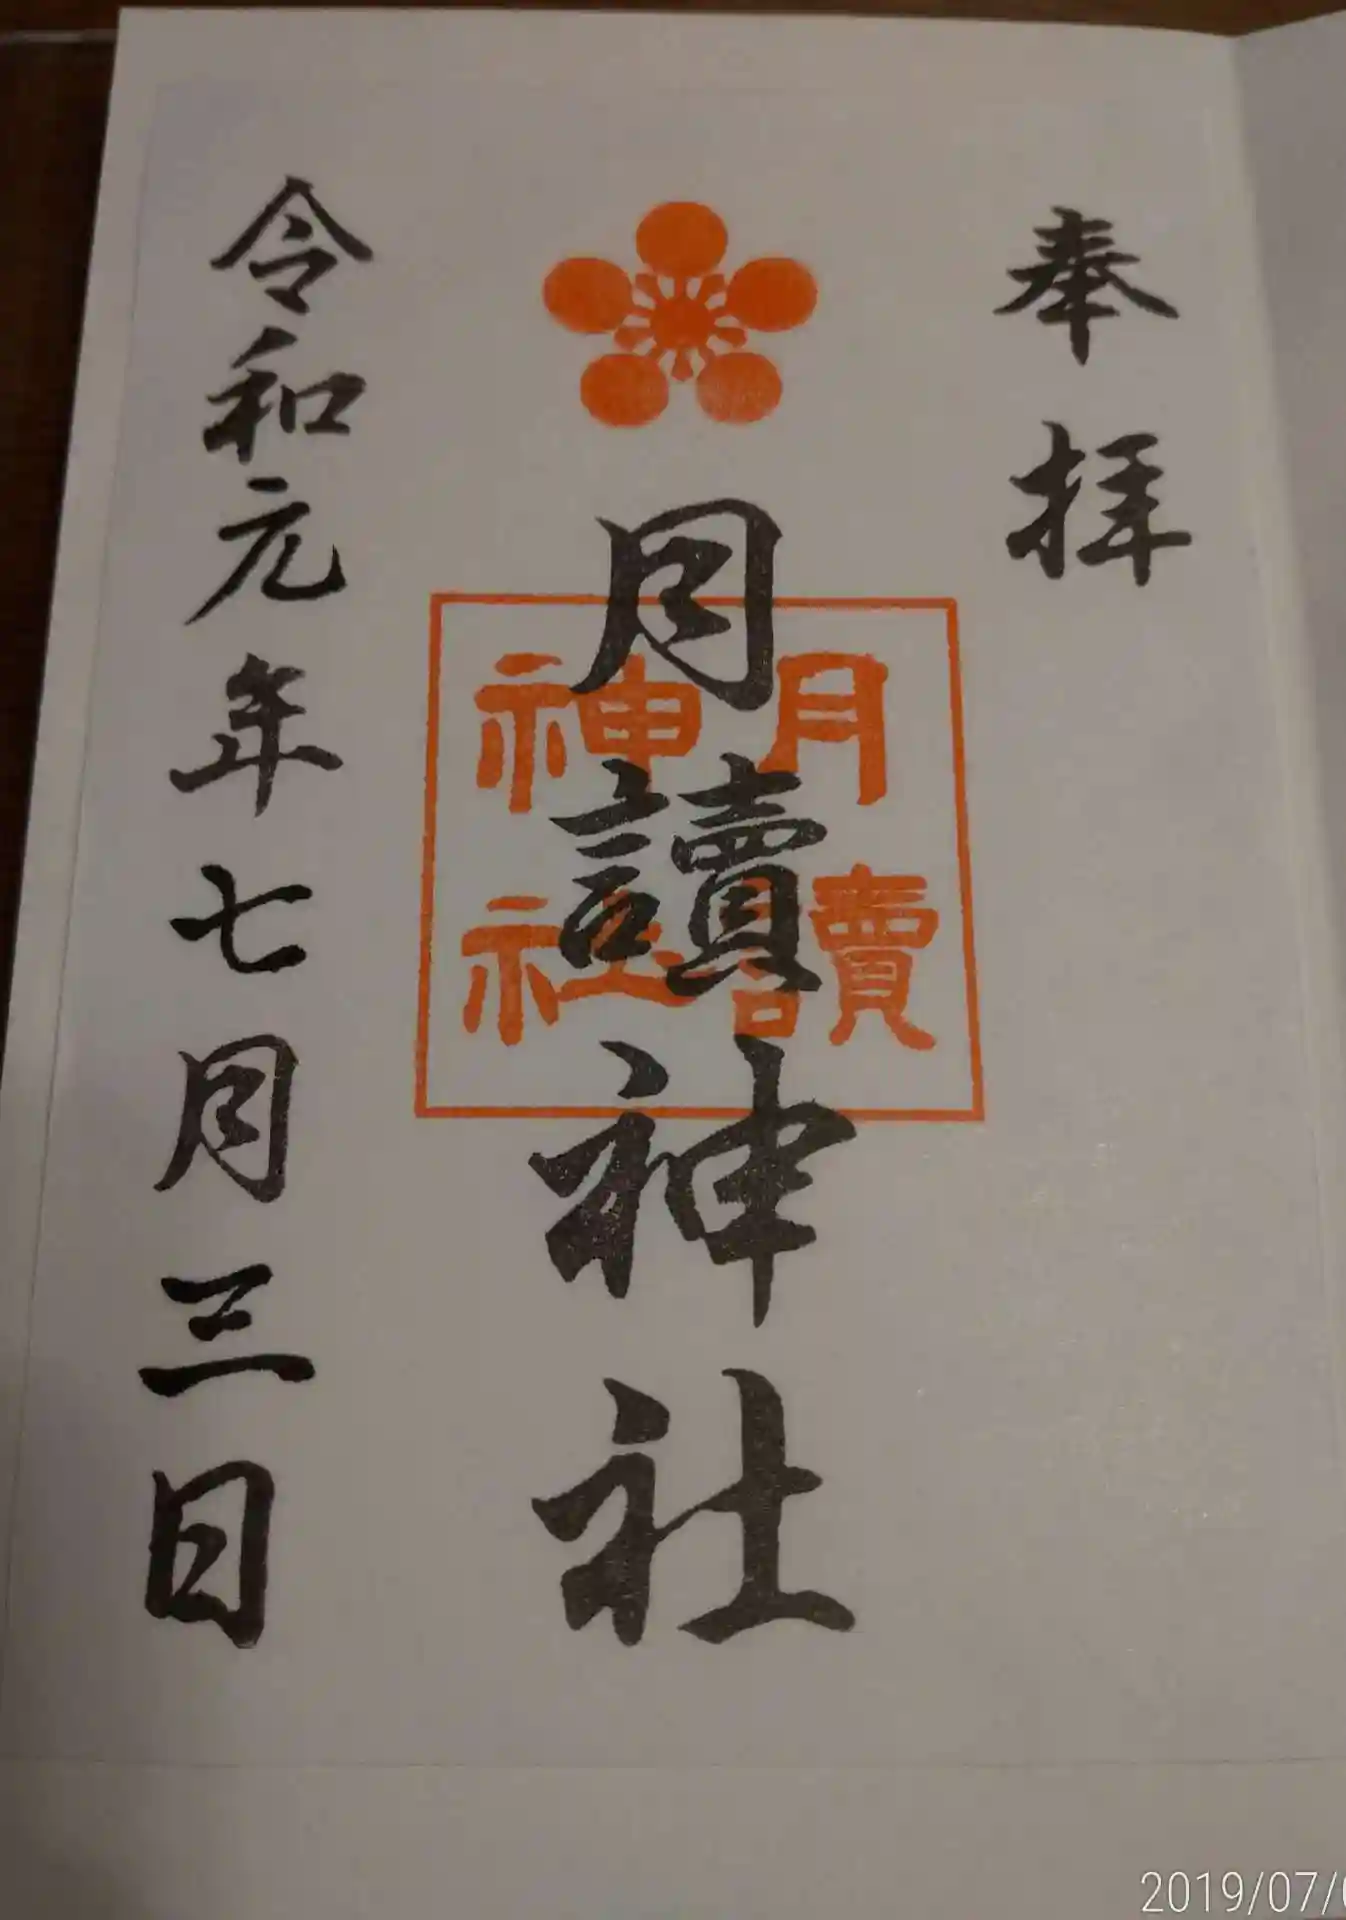 奉拝
月讀神社
月讀
神社
令和元年七月三日
2019/07/0